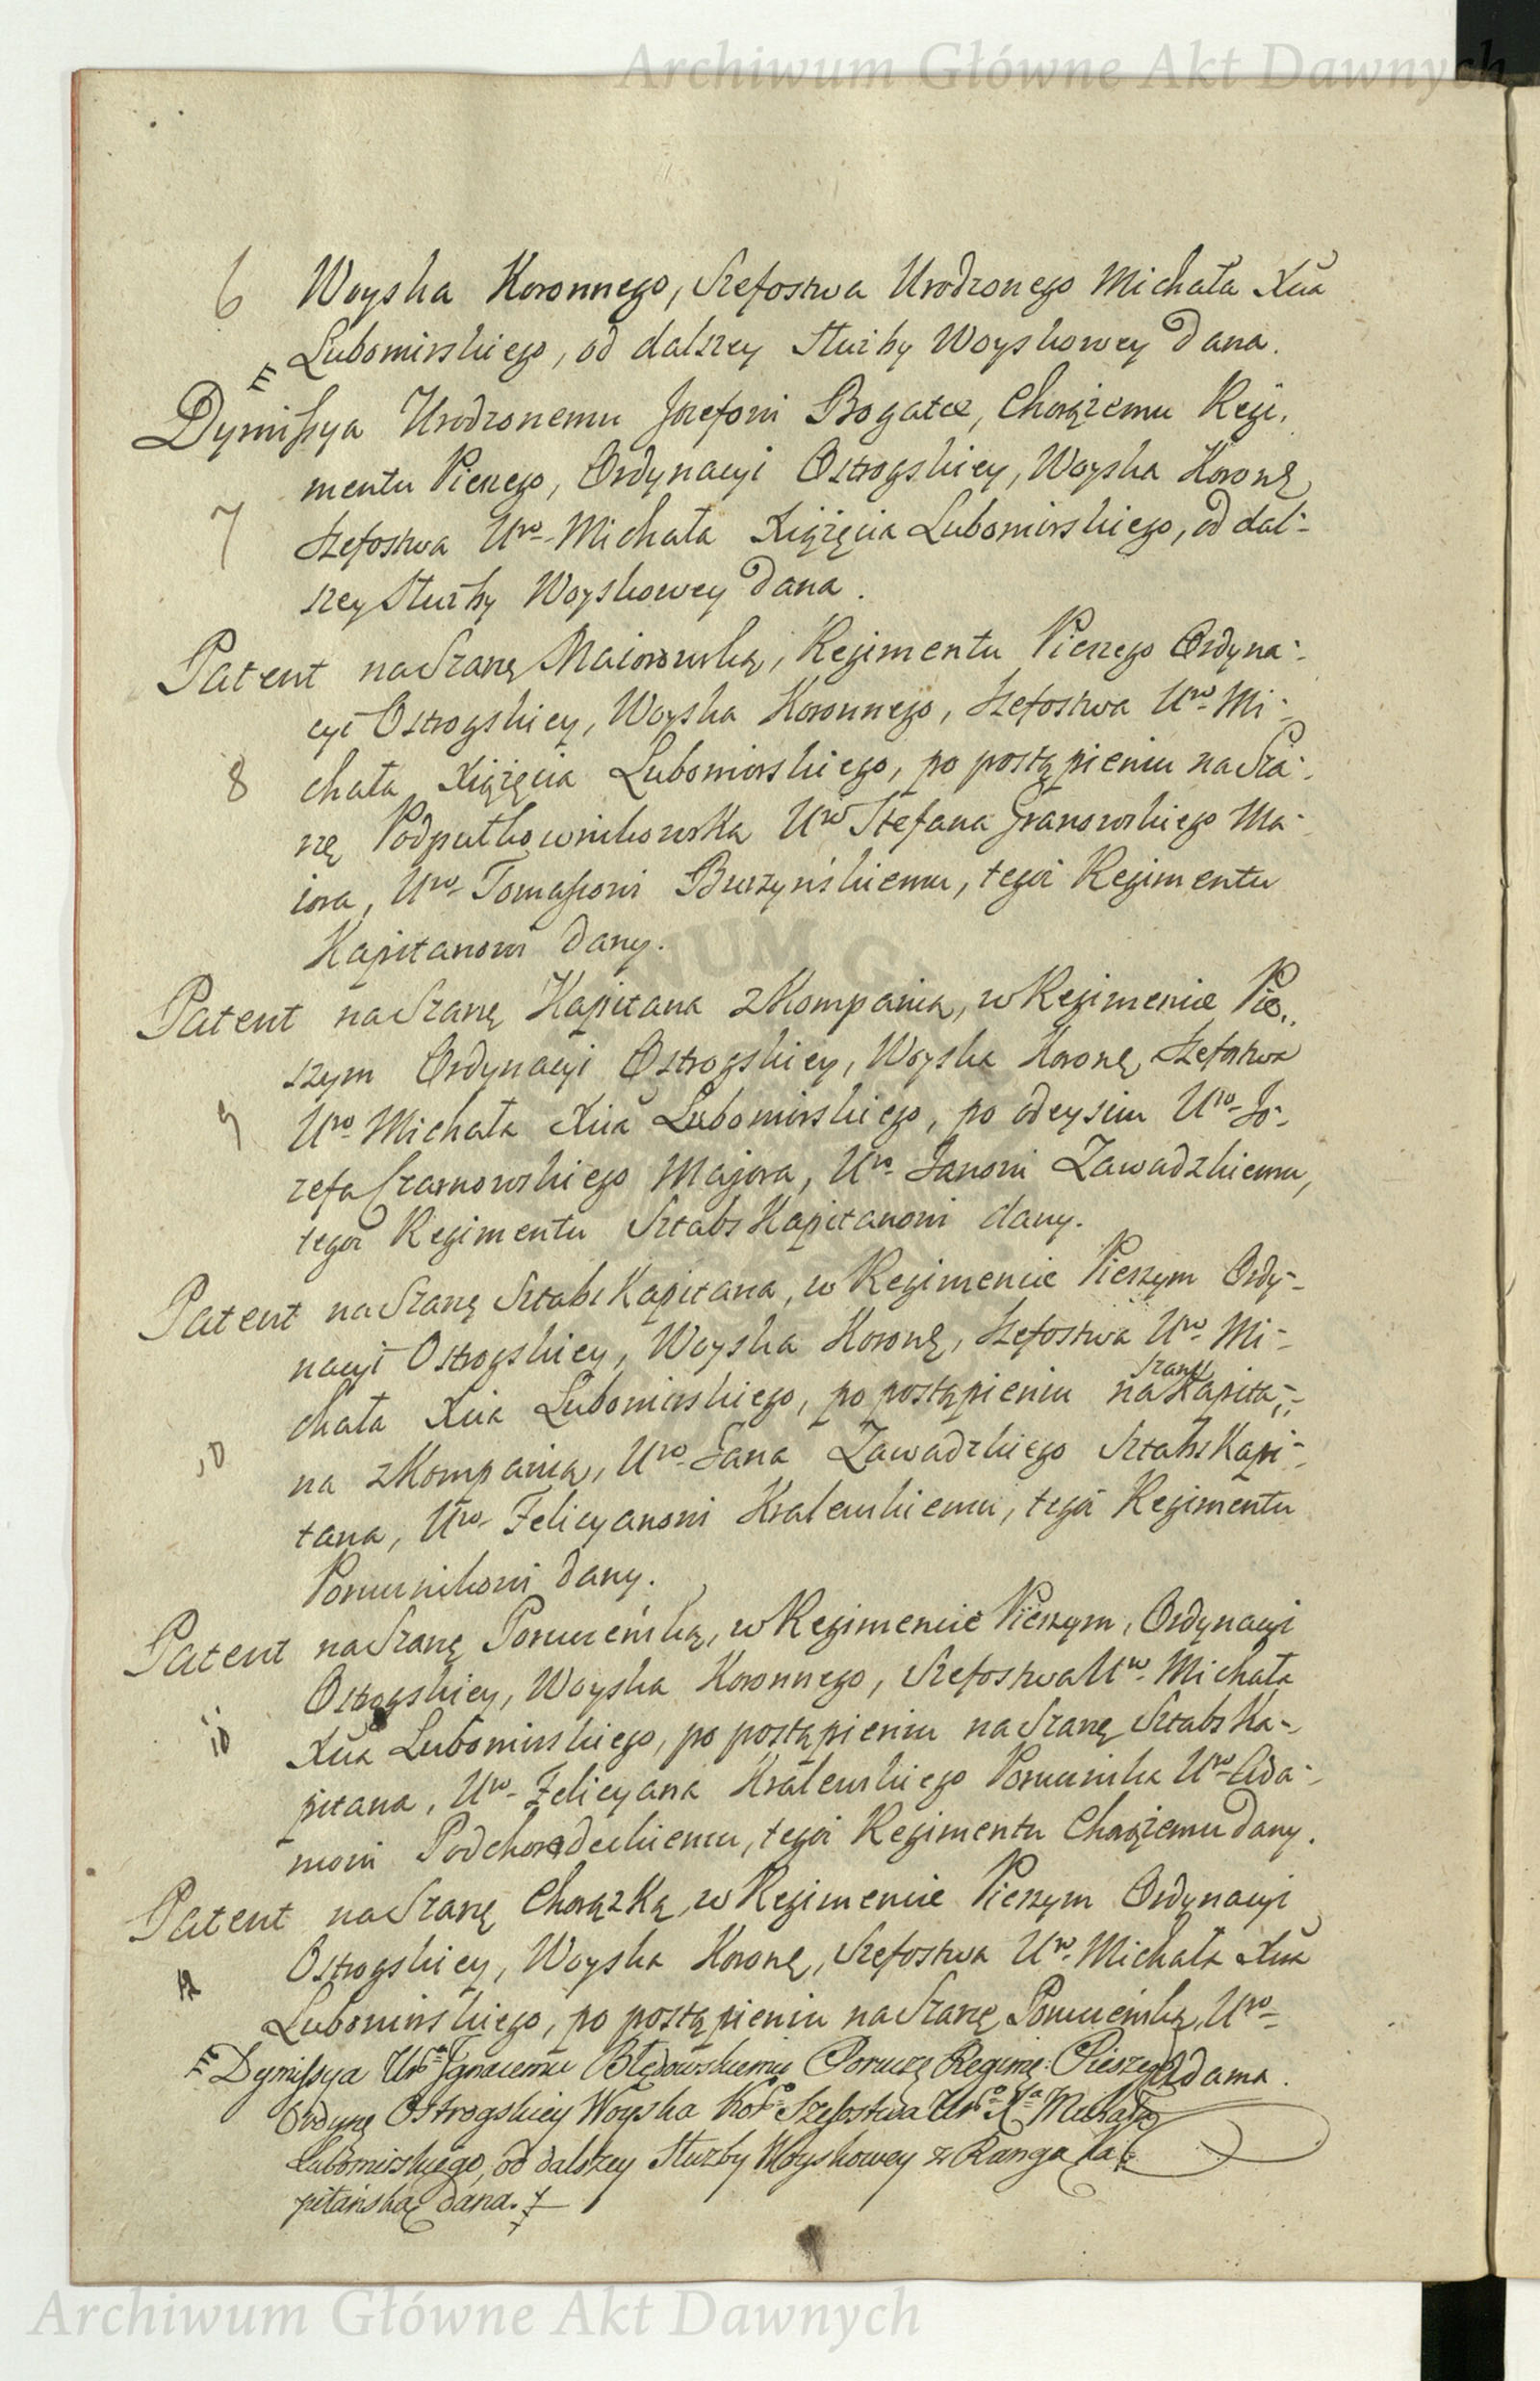 Archiwum Główne Akt Dawnych
6 Woyska Koronnego, Szefostwa Urodzonego Michała Xcia
Lubomirskiego, od dalszey służby Woyskowey dana.
Dymissya Urodzonemu Jozefowi Bogatce, Chorążemu Regi-
mentu Pieszego, Ordynacyi Ostrogskiey, Woyska Koronę
7 Szefostwa Uro Michała Xiążęcia Lubomirskiego, od dal-
szey służby Woyskowey dana.
Patent na Szarżę Maiorowską, Regimentu Pieszego Ordyna-
cyi Ostrogskiey, Woyska Koronnego, Szefostwa Uro Mi-
8 chała Xiążęcia Lubomirskiego, po postąpieniu na Sza-
rżę Podpułkownikowską Uro Stefana Granowskiego Ma-
iora, Uro Tomaszowi Burzyńskiemu, tegoż Regimentu
Kapitanowi dany.
Patent na Szarżę Kapitana z Kompanią, w Regimencie Pie-
szym Ordynacyi Ostrogskiey, Woyska Koronę, Szefostwa
9 Uro Michała Xcia Lubomirskiego, po odeysciu Uro Jó-
zefa Czarnowskiego Majora, Uro Janowi Zawadzkiemu,
tegoż Regimentu Sztabs Kapitanowi dany.
Patent na Szarżę Sztabs Kapitana, w Regimencie Pieszym Ordy-
nacyi Ostrogskiey, Woyska Koronę, Szefostwa Uro Mi-
chała Xcia Lubomirskiego, po postąpieniu na Szarżę Kapita-
10 na z Kompanią, Uro Jana Zawadzkiego Sztabs Kapi-
tana, Uro Felicyanowi Kralewskiemu, tegoż Regimentu
Porucznikowi dany.
Patent na Szarżę Porucznską, w Regimencie Pieszym, Ordynacyi
Ostrogskiey, Woyska Koronnego, Szefostwa Uro Michała
11 Xcia Lubomirskiego, po postąpieniu na Szarżę Sztabs Ka-
pitana, Uro Felicyana Kralewskiego Porucznika Uro Ada-
mowi Podchorodeckiemu, tegoż Regimentu Chorążemu dany.
Patent na Szarżę Chorązką, w Regimencie Pieszym Ordynacyi
Ostrogskiey, Woyska Koronę, Szefostwa Uro Michała Xcia
12 Lubomirskiego, po postąpieniu na Szarżę Porucznską Uro
Adama.
Dymissya Uro Ignacemu Błędowskiemu Porucz Regim: Pieszego
Ordynę Ostrogskiey Woyska Koro Szefostwa Uro Xcia Michała
Lubomirskiego, od dalszey służby Woyskowey z Rangą Ka-
pitańską dana.
Archiwum Główne Akt Dawnych